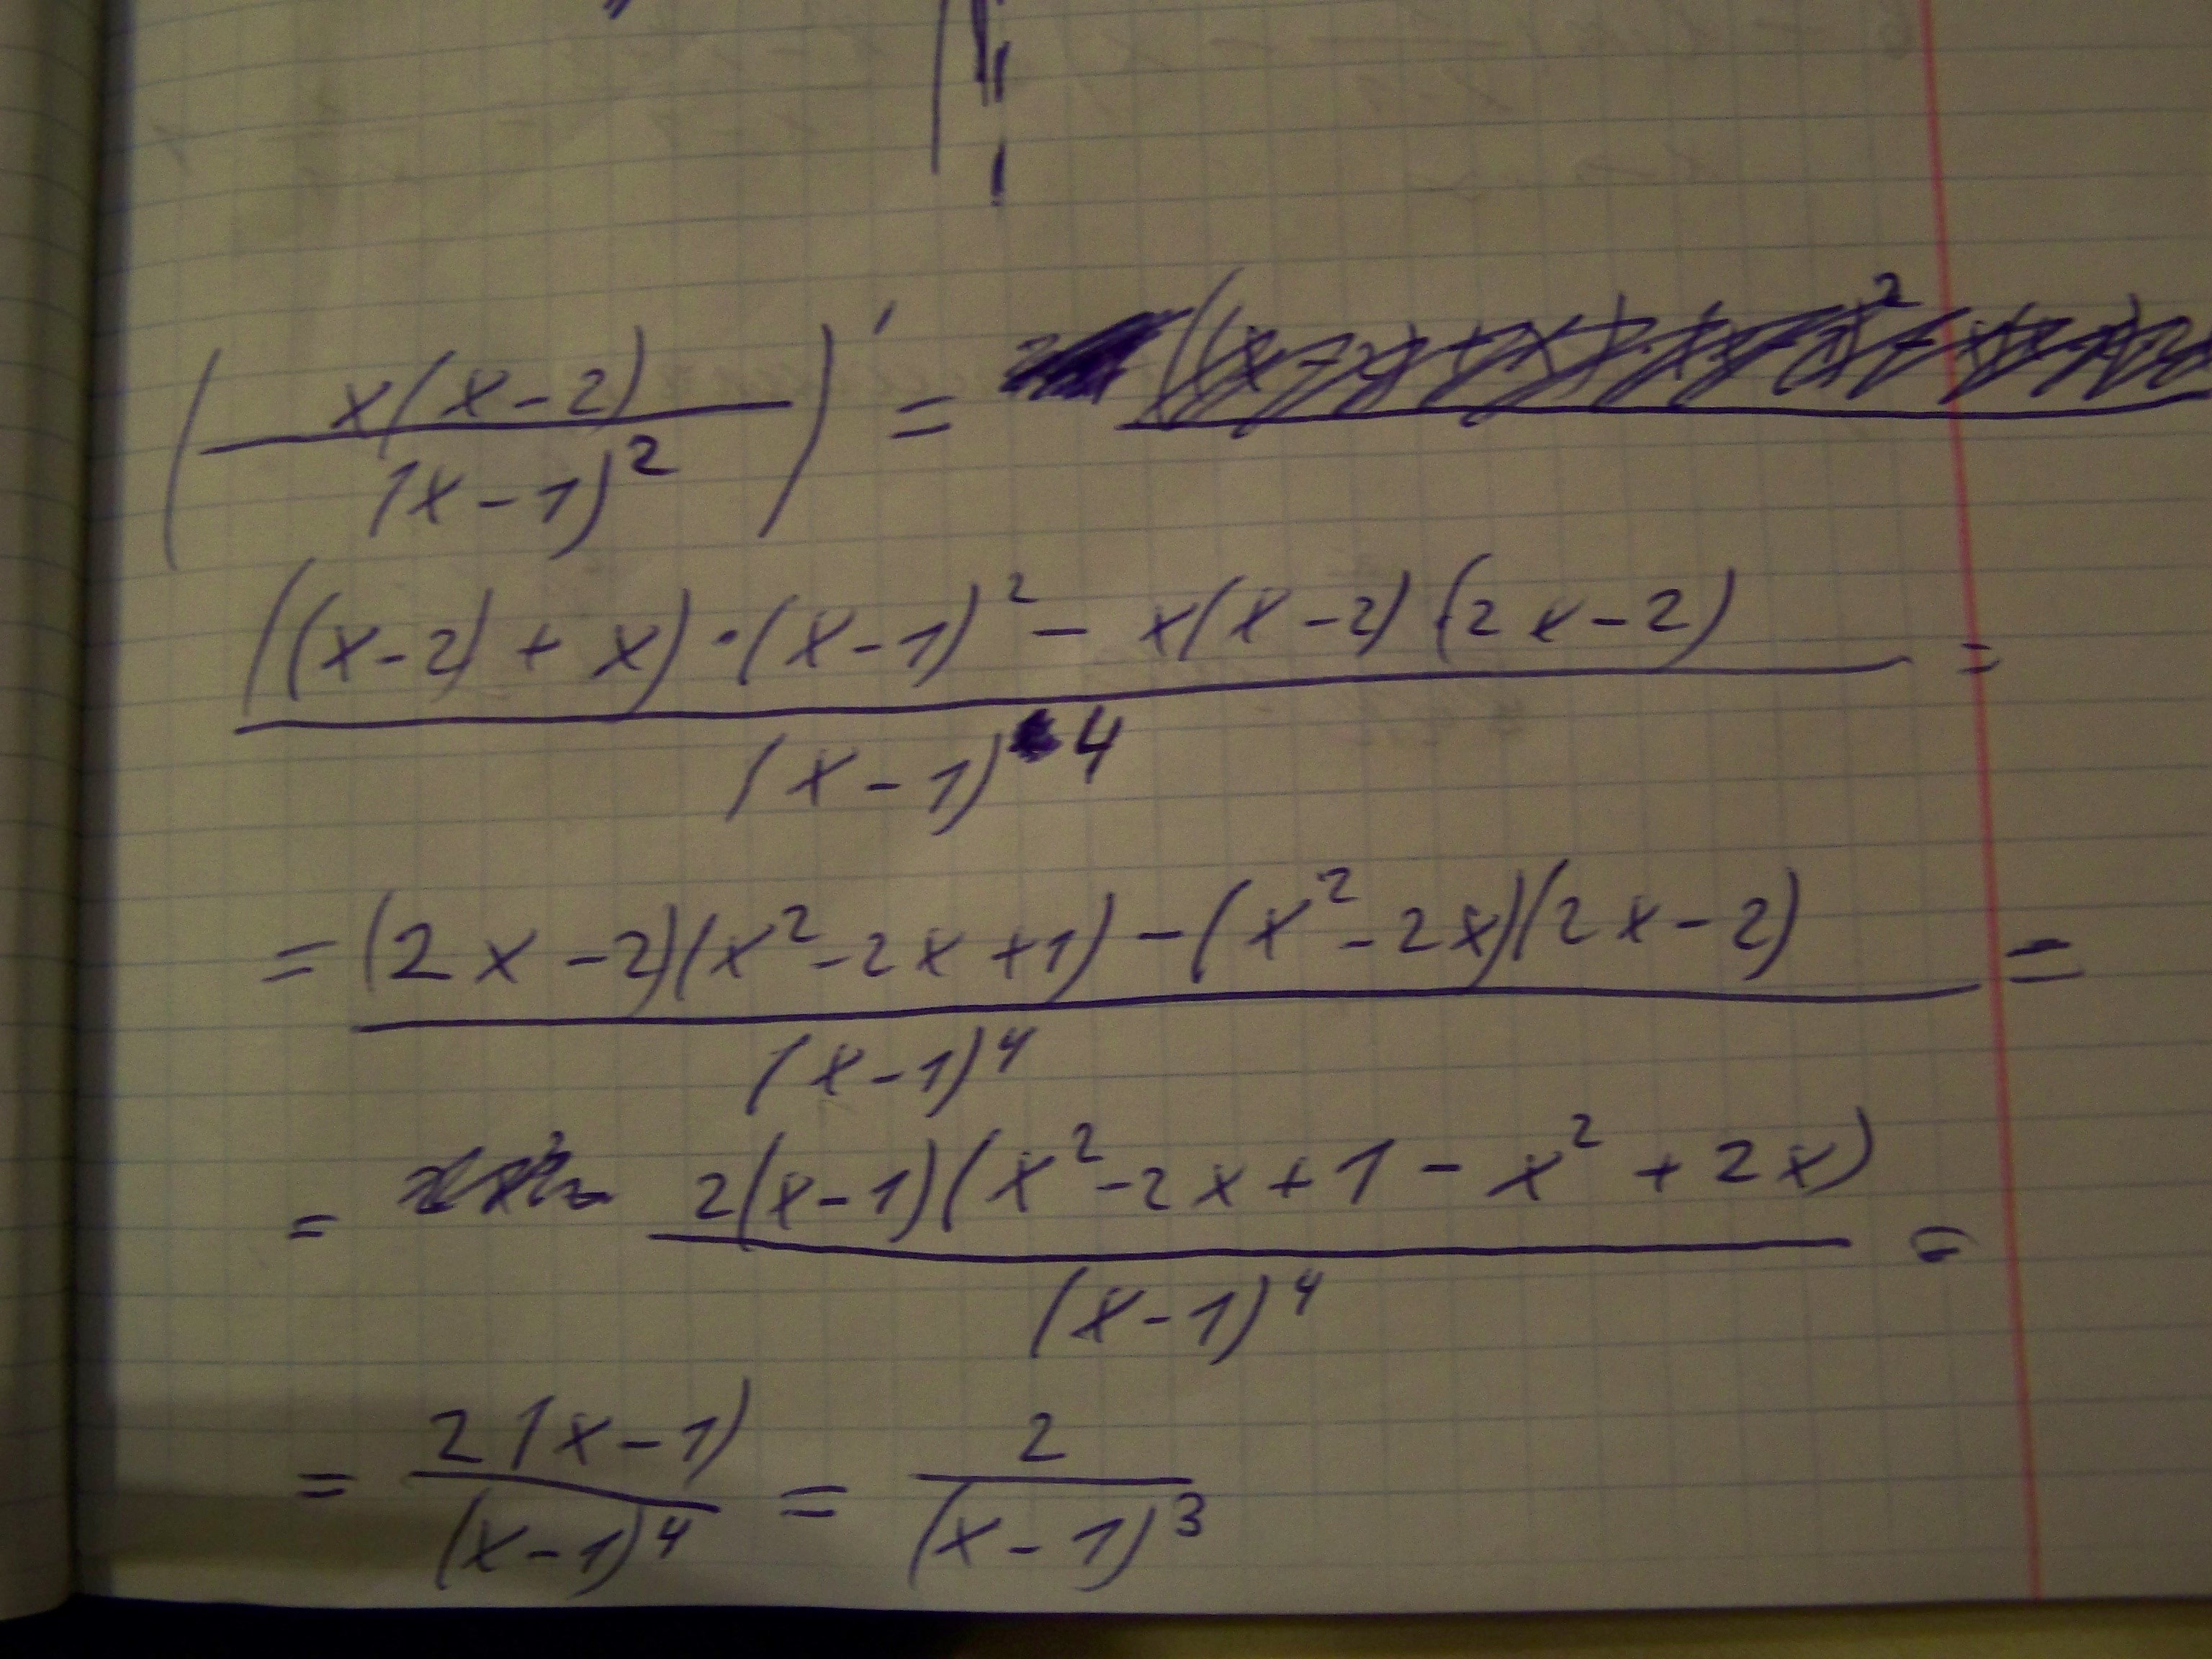 (x(x-2)/(x-1)²)' =
((x-2)+x)·(x-1)² - x(x-2)(2x-2)/(x-1)⁴ =
= (2x-2)(x²-2x+1)-(x²-2x)(2x-2)/(x-1)⁴ =
= 2(x-1)(x²-2x+1-x²+2x)/(x-1)⁴ =
= 2(x-1)/(x-1)⁴ = 2/(x-1)³